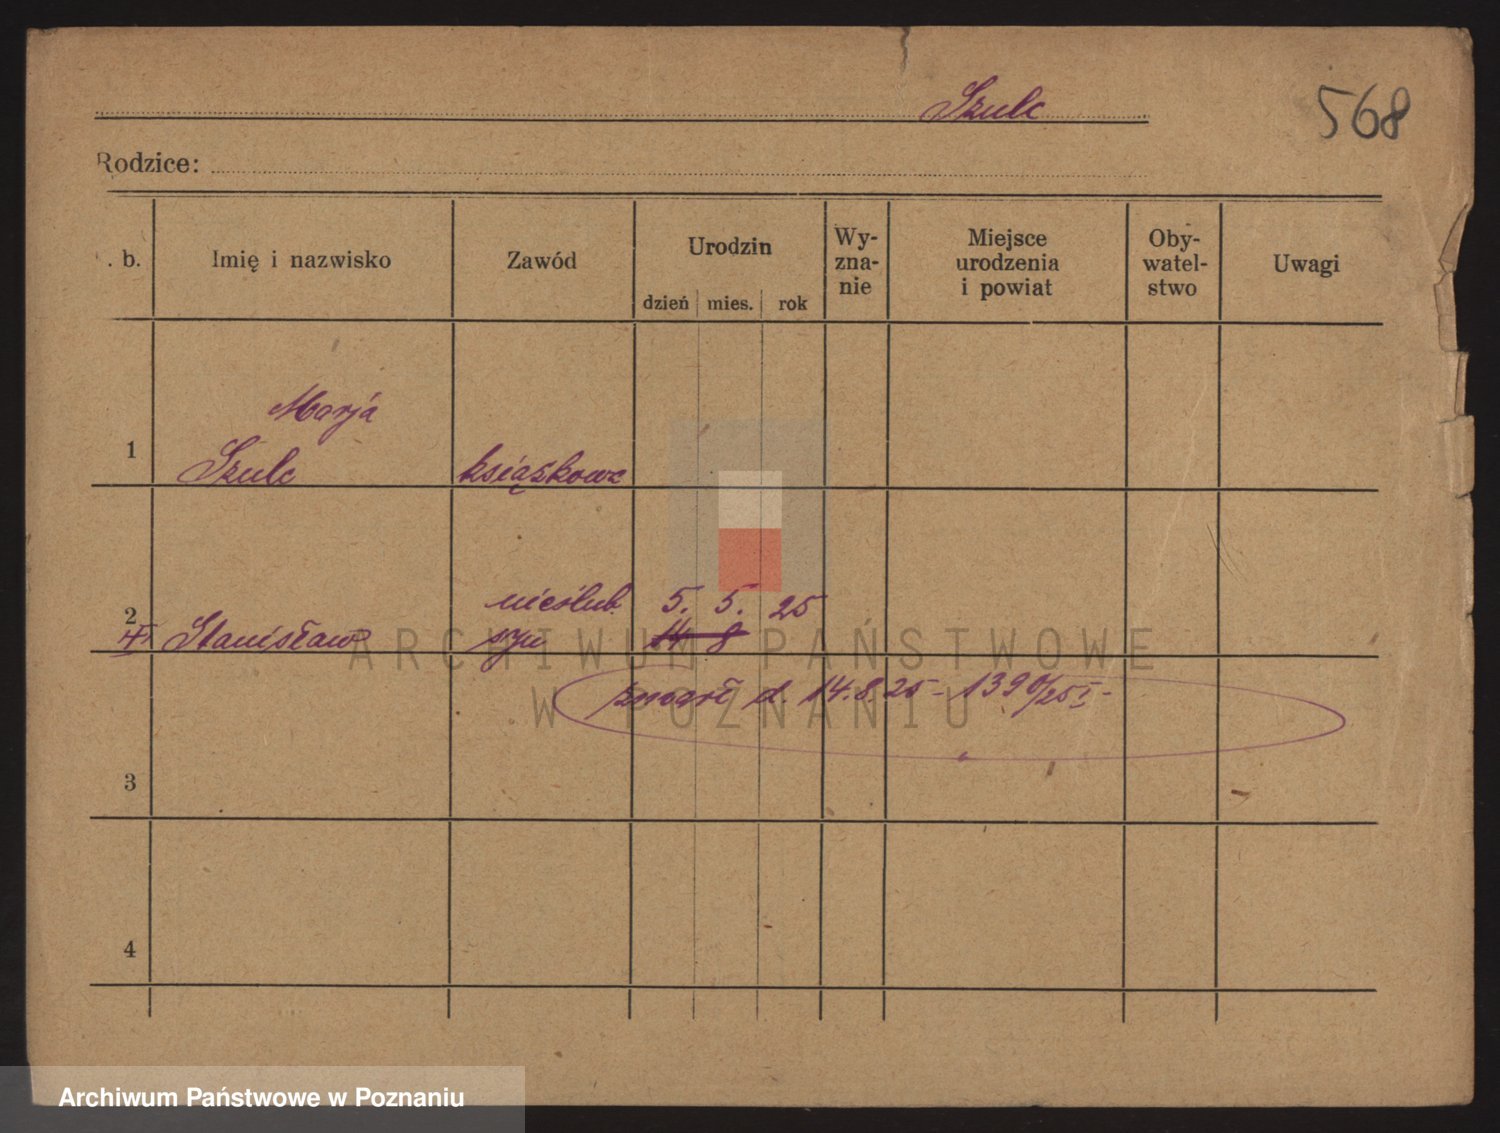 Szulc
568
Rodzice:
. b.
Imię i nazwisko
Zawód
Urodzin
dzień mies. rok
Wy-
zna-
nie
Miejsce
urodzenia
i powiat
Oby-
watel-
stwo
Uwagi
Marja
1 Szulc książkowa
nieślub. 5. 5. 25
2
Stanisław syn 14 8
zmarł d. 14.8.25 - 1390/25 I -
3
4
ARCHIWUM PAŃSTWOWE
W POZNANIU
Archiwum Państwowe w Poznaniu